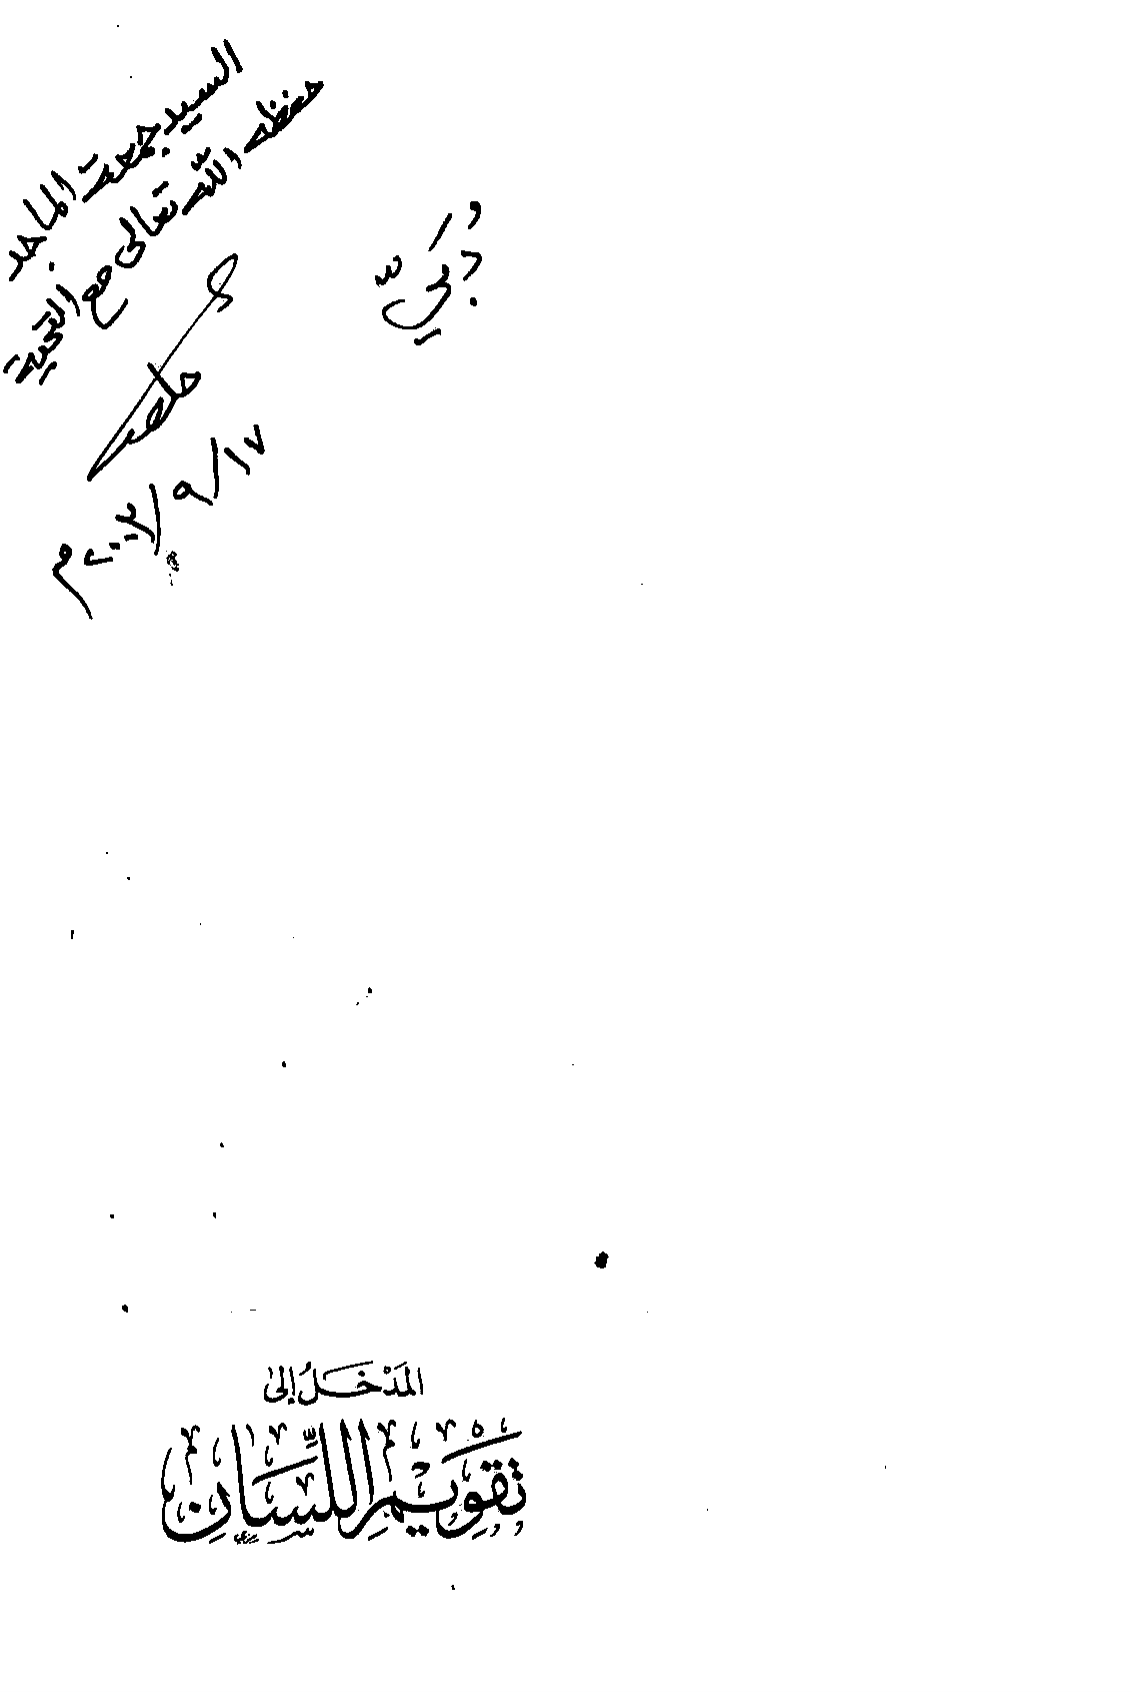 السيد جمعة الماجد
حفظه الله تعالى مع التحية
دُبَيّ
١٧/٩/٢٠٠٣م
المَدْخَلُ إلى
تَقْوِيمِ اللِّسَانِ